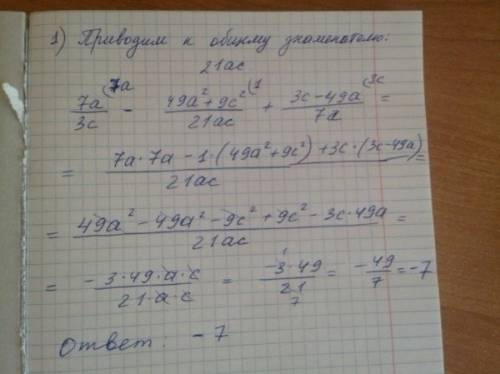 1) Приводим к общему знаменателю:
21ac
7a/3c (7a - 49a²+9c²/21ac (1 + 3c-49a/7a (3c =
= 7a·7a - 1·(49a²+9c²)+3c·(3c-49a)/21ac =
= 49a² - 49a² - 9c² + 9c² - 3c·49a/21ac =
= -3·49·a·c/21·a·c = -3·49/21 1 7 = -49/7 = -7
Ответ: -7